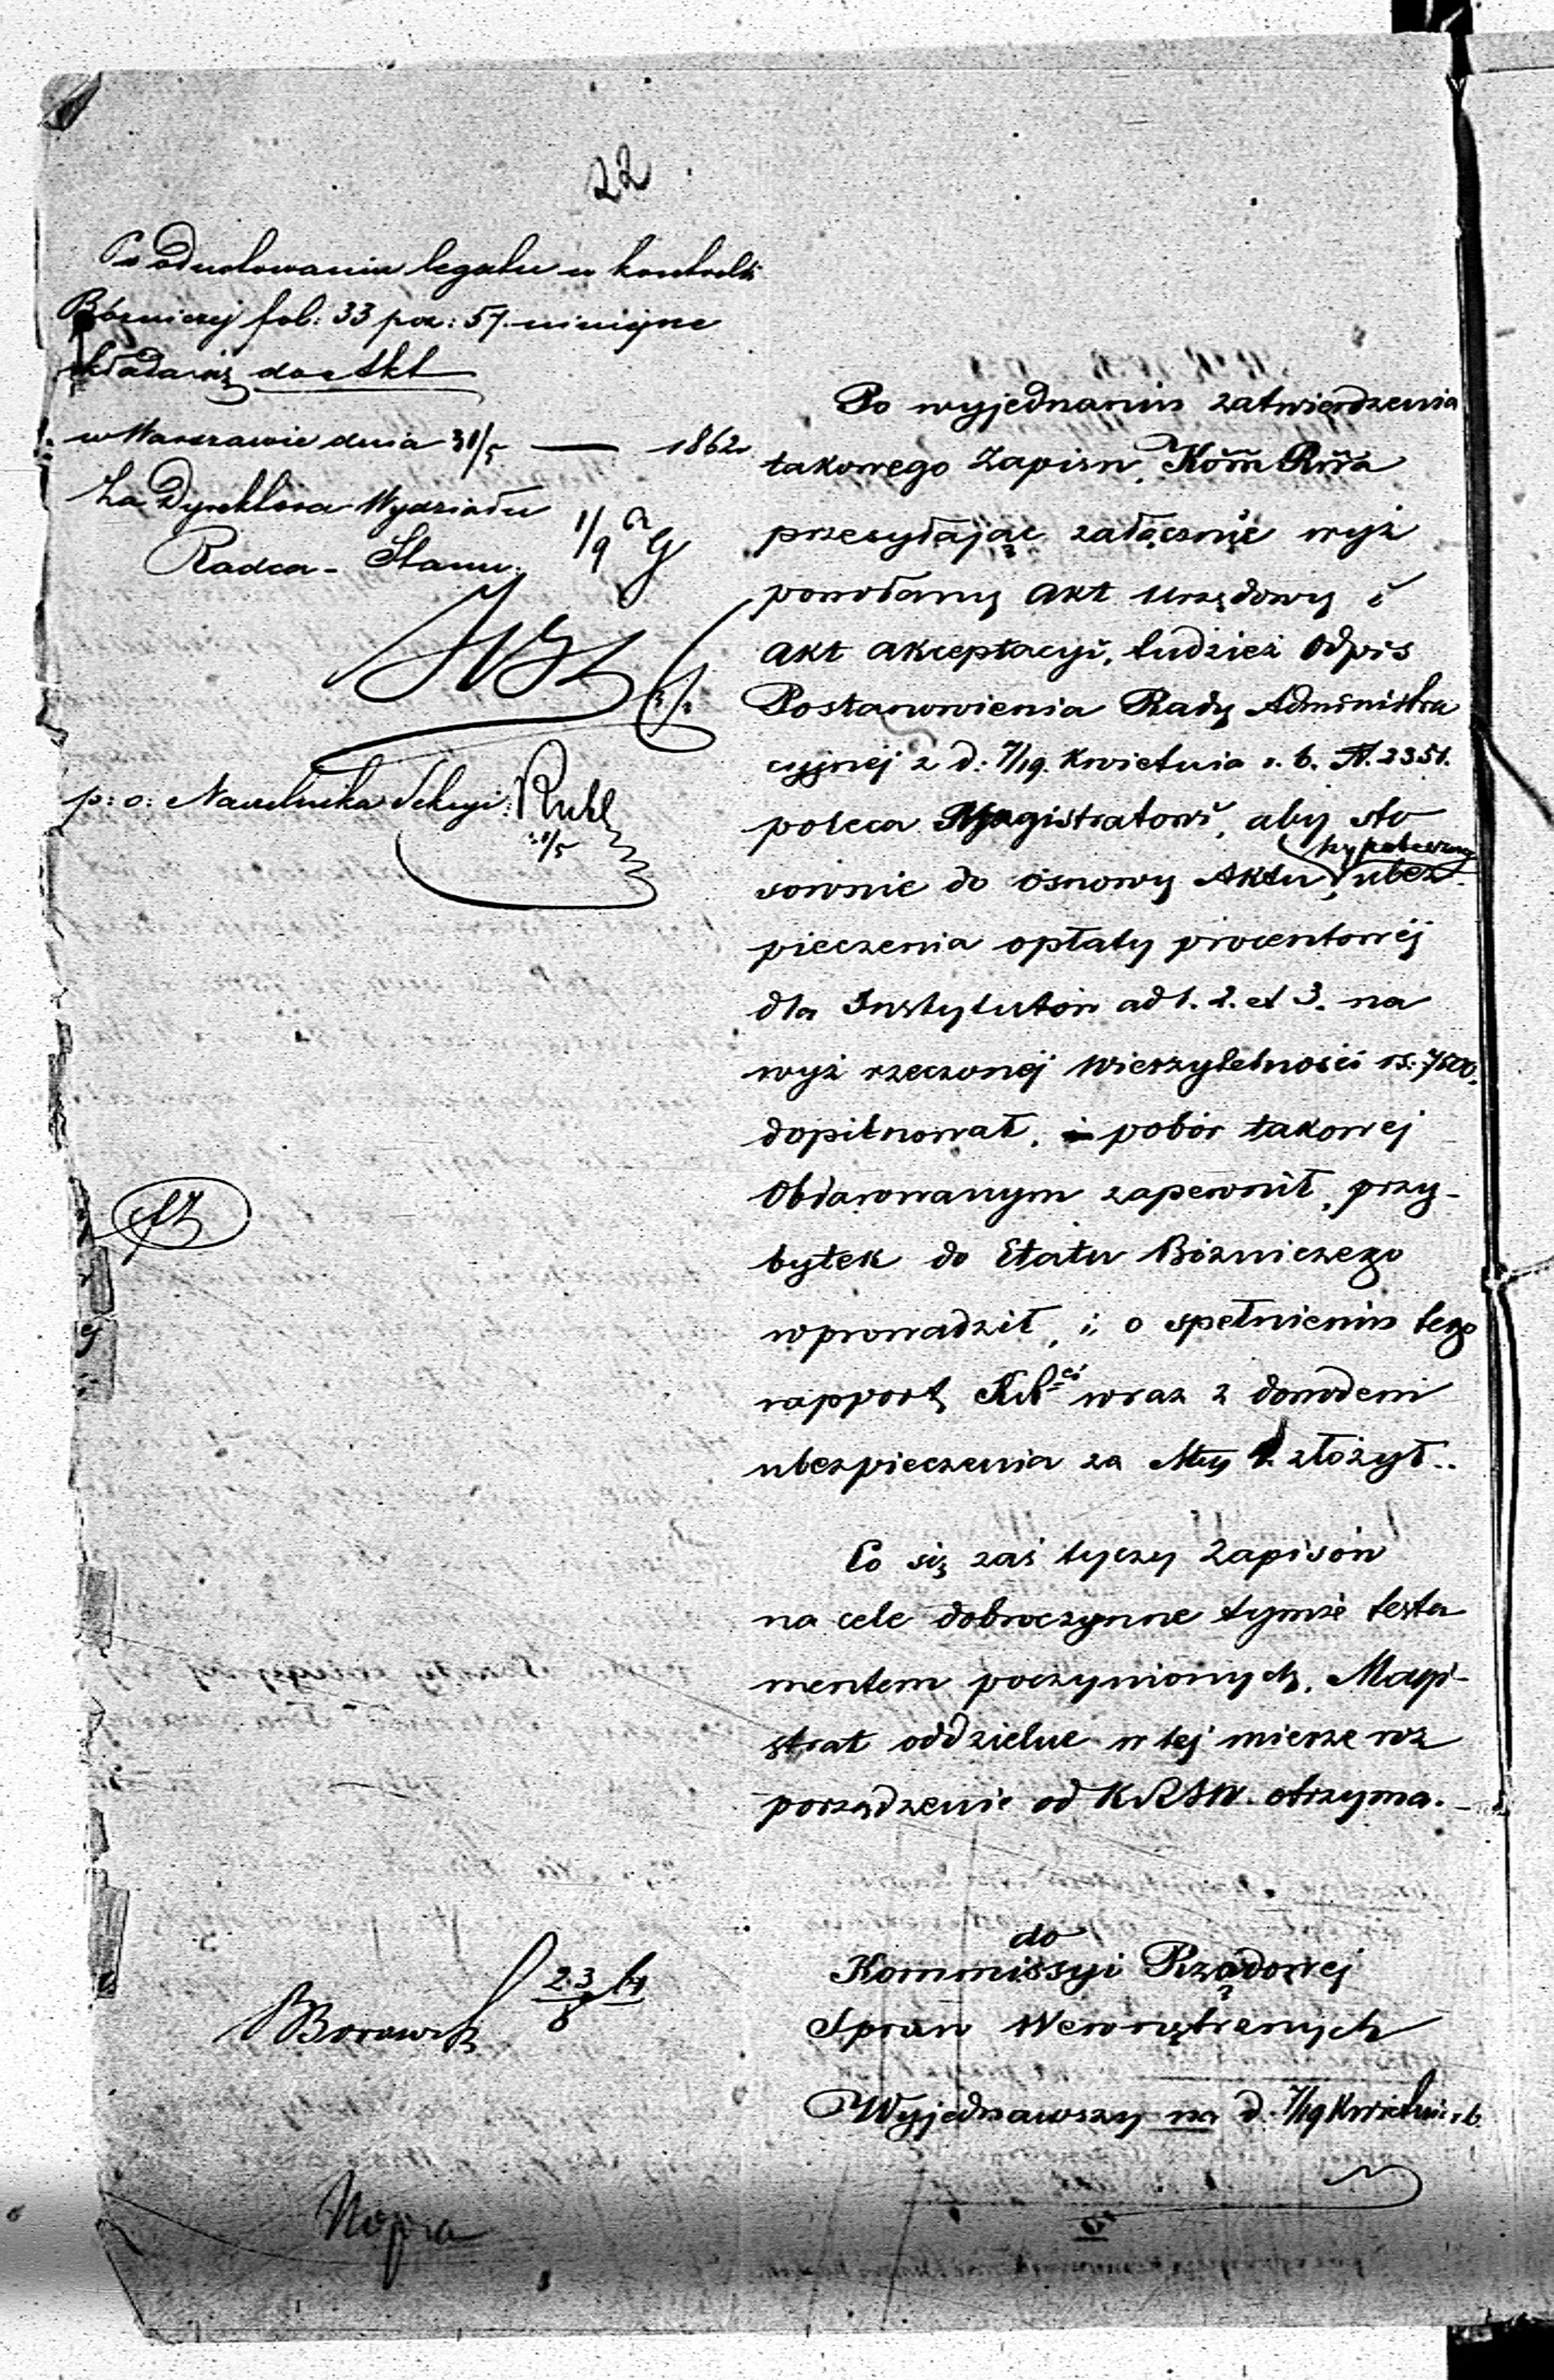 22
Po odnotowaniu legatu w kontrolli
Bóżniczej fol: 33 poz: 57. niniejsze
składa się do Akt
w Warszawie dnia 31/5 — 1862
Za Dyrektora Wydziału
Radca Stanu
p: o: Naczelnika Sekcyi:
Po wyjednaniu zatwierdzenia
takowego Zapisu, Kom̃ Rz̃a
przesyłając załącznie wyż
powołany akt urzędowy i
akt akceptacyi, tudzież Odpis
Postanowienia Rady Administra
cyjnej z d: 7/19. Kwietnia r. b. N. 2351.
poleca Magistratowi, aby sto
sownie do osnowy Aktu, hypoteczne ubez
pieczenia opłaty procentowéj
dla Instytutów ad 1. 2. et 3. na
wyż rzeczonéj wierzytelności rs: 7500,
dopilnował, pobór takowej
Obdarowanym zapewnił, przy-
bytek do Etatu Bóżniczego
wprowadził, i o spełnieniu tego
rapport wraz z dowodem
ubezpieczenia za złożył..
Co się zaś tyczy Zapisów
na cele dobroczynne tymże testa
mentem poczynionych, Magi-
strat oddzielne w tej mierze roz
porządzenie od KRSW. otrzyma.
do
Kommissyi Rządowej
Spraw Wewnętrznych
Wyjednawszy na d. 7/19 Kwietnia r. b.